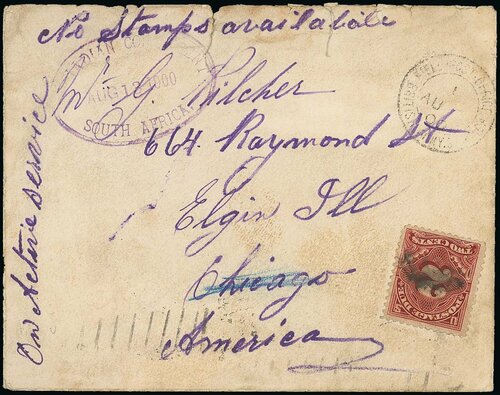 No Stamps available
AUG 12 1900
SOUTH AFRICA
G. Pilcher
664 Raymond St
Elgin Ill
Chicago
America
On Active Service
TWO CENTS
2
POSTAGE DUE
AU